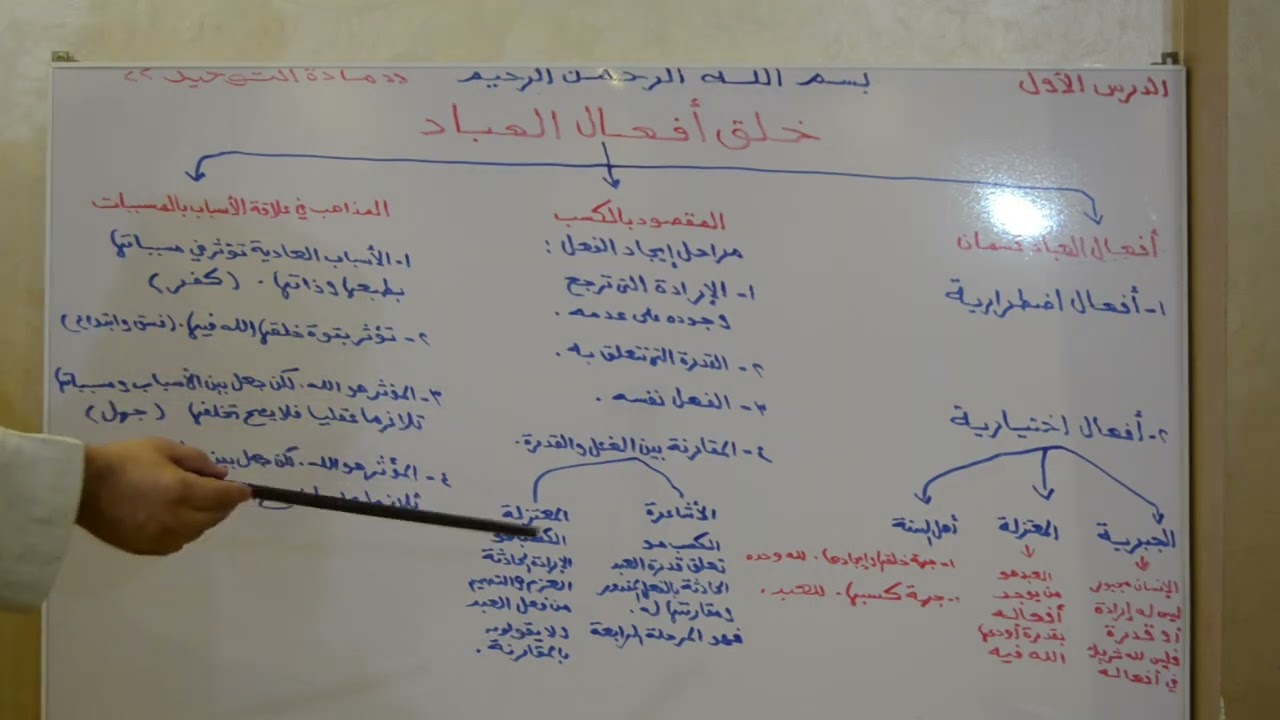 الدرس الأول
بسم الله الرحمن الرحيم
((مادة التوحيد))
خلق أفعال العباد
أفعال العباد قسمان
١- أفعال اضطرارية
٢- أفعال اختيارية
الجبرية
الإنسان مجبور
ليس له إرادة
أو قدرة
فليس لله شريك
في أفعاله
المعتزلة
العبد هو
من يوجد
أفعاله
بقدرة أودعها
الله فيه
أهل السنة
١- جهة خلقها وإيجادها. لله وحده
٢- جهة كسبها. للعبد.
المقصود بالكسب
مراحل إيجاد الفعل:
١- الإرادة التي ترجح
وجوده على عدمه.
٢- القدرة التي تتعلق به.
٣- الفعل نفسه.
٤- المقارنة بين الفعل والقدرة.
الأشاعرة
الكسب هو
تعلق قدرة العبد
الحادثة بالفعل المقدور
ومقارنتها له.
فهو المرحلة الرابعة
المعتزلة
الكسب هو
الإرادة الحادثة
العزم والتصميم
من فعل العبد
ولا يقولون
بالمقارنة.
المذاهب في علاقة الأسباب بالمسببات
١- الأسباب العادية تؤثر في مسبباتها
بطبعها وذاتها. (كفر)
٢- تؤثر بقوة خلقها الله فيها. (فسق وابتداع)
٣- المؤثر هو الله. لكن جعل بين الأسباب ومسبباتها
تلازما عقليا فلا يصح تخلفها (جهل)
٤- المؤثر هو الله. لكن جعل بين
تلازما